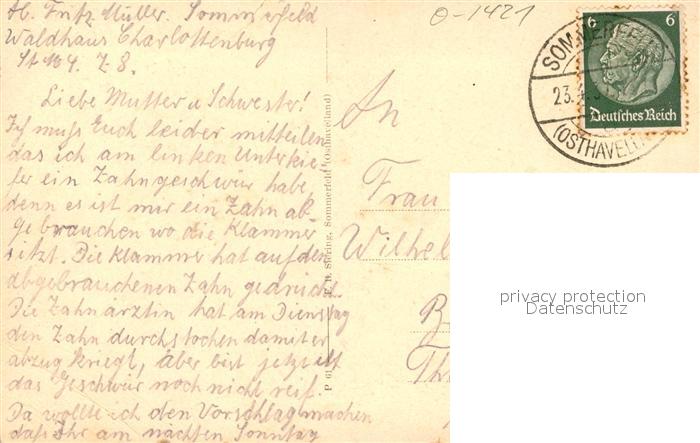 Ab. Fritz Müller. Sommerfeld
Waldhaus Charlottenburg
St 104. Z. 8.
Liebe Mutter u Schwester!
Ich muß Euch leider mitteilen
das ich am linken Unterkie-
fer ein Zahngeschwür habe,
denn es ist mir ein Zahn ab-
gebrauchen wo die Klammer
sitzt. Die Klammer hat auf den
abgebrauchenen Zahn gedrückt.
Die Zahnärztin hat am Dienstag
den Zahn durchstochen damit er
abzug kriegt, aber bist jetzt ist
das Geschwür noch nicht reif.
Da wollte ich den Vorschlag machen
daß Ihr am nächsten Sonntag
P 61
F. H. Siering, Sommerfeld (Osthavelland)
O-1421
An
Frau
Wilhel
B
Th
SOMMERFELD
23.4.
(OSTHAVELL
6 6
Deutsches Reich
privacy protection
Datenschutz